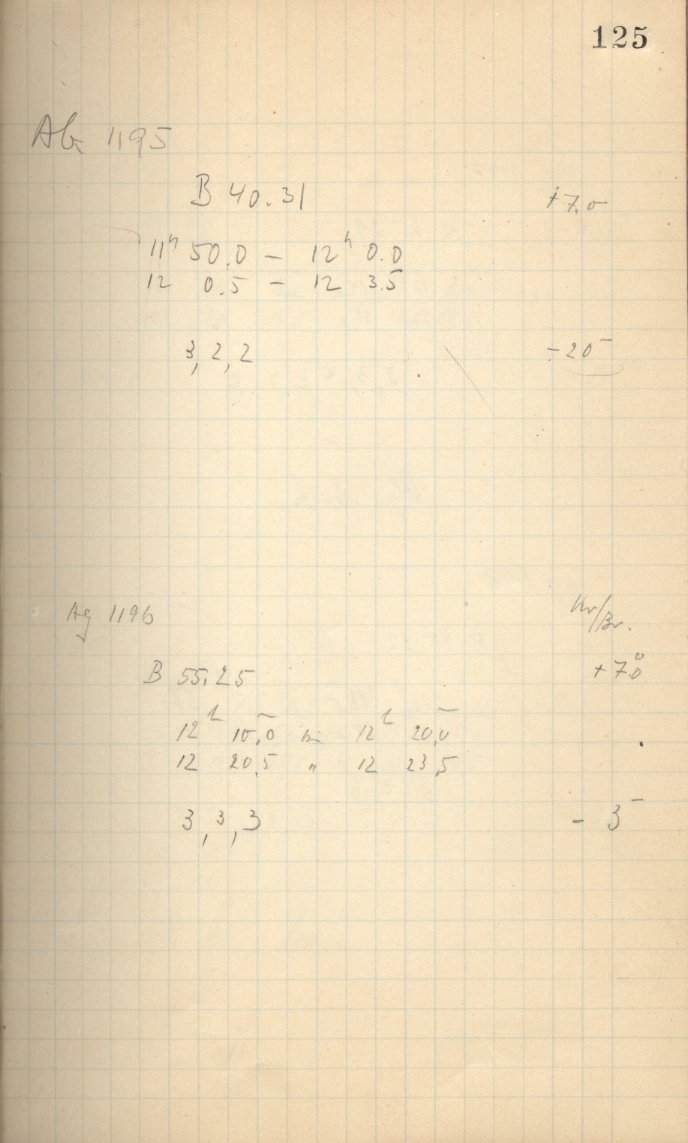 125
Ab 1195
B 40.31 +7.0
11ʰ 50.0 – 12ʰ 0.0
12 0.5 – 12 3.5
3, 2, 2 –20ˢ
Ag 1196 Kr/Br.
B 55.25 +7.0°
12ʰ 10,0 bis 12ʰ 20,0
12 20,5 " 12 23,5
3, 3, 3 – 3